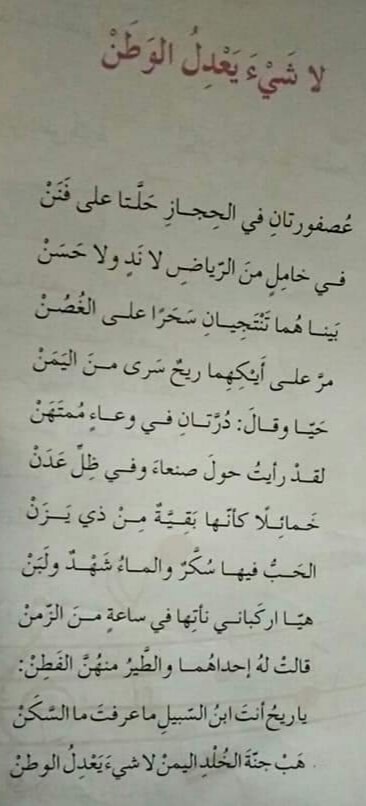 لا شَيْءَ يَعْدِلُ الوَطَنْ
عُصفورتانِ في الحِجازِ حَلَّتا على فَنَنْ
في خامِلٍ منَ الرّياضِ لا نَدٍ ولا حَسَنْ
بَينا هُما تَنْتَجِيانِ سَحَرًا على الغُصُنْ
مرَّ على أَيْكِهِما ريحٌ سَرى منَ اليَمَنْ
حَيّا وقالَ: دُرَّتانِ في وعاءٍ مُمتَهَنْ
لقدْ رأيتُ حولَ صنعاءَ وفي ظِلِّ عَدَنْ
خَمائِلًا كأنّها بَقِيَّةٌ مِنْ ذي يَزَنْ
الحَبُّ فيها سُكَّرٌ والماءُ شَهْدٌ ولَبَنْ
هيّا اركَباني نأتِها في ساعةٍ منَ الزّمنْ
قالتْ لهُ إحداهُما والطَّيرُ منهُنَّ الفَطِنْ:
ياريحُ أنتَ ابنُ السّبيلِ ماعرفتَ ما السَّكَنْ
هَبْ جنّةَ الخُلْدِ اليمنْ لا شيءَ يَعْدِلُ الوطنْ